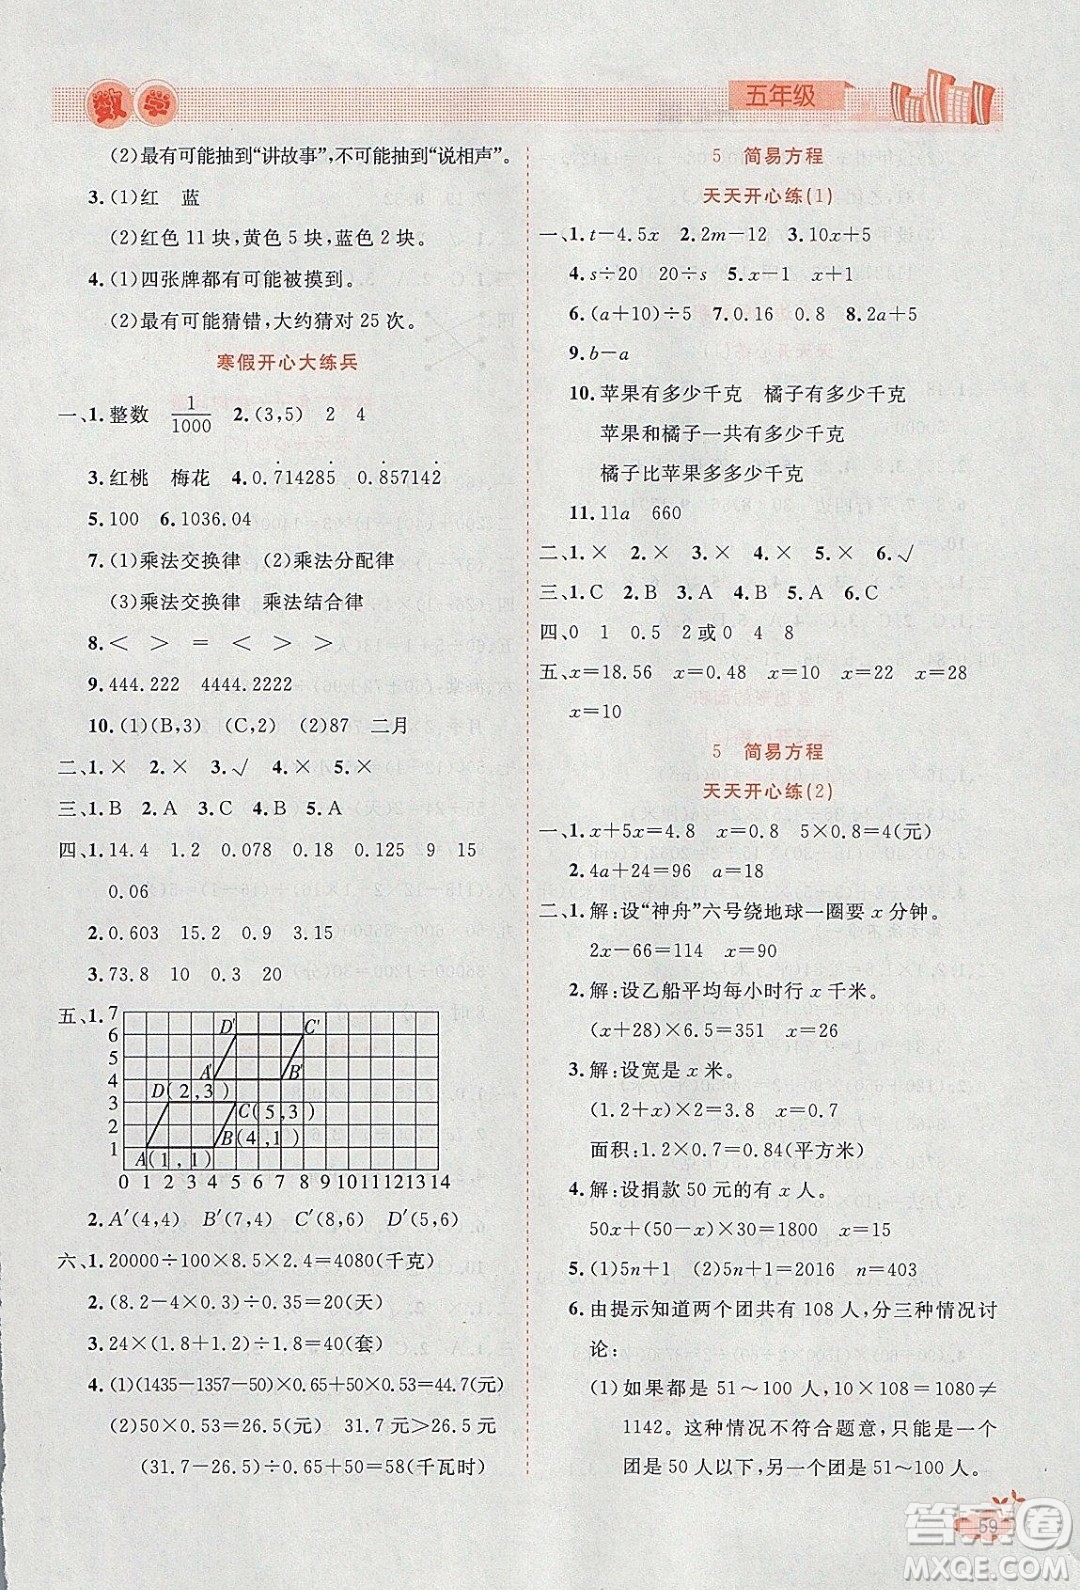 数学
五年级
(2)最有可能抽到“讲故事”,不可能抽到“说相声”。
3.(1)红 蓝
(2)红色 11 块,黄色 5 块,蓝色 2 块。
4.(1)四张牌都有可能被摸到。
(2)最有可能猜错,大约猜对 25 次。
寒假开心大练兵
一、1.整数 1/1000 2.(3,5) 2 4
3.红桃 梅花 4.0.7̇14285̇ 0.8̇57142̇
5.100 6.1036.04
7.(1)乘法交换律 (2)乘法分配律
(3)乘法交换律 乘法结合律
8.< > = < > >
9.4444.222 4444.2222
10.(1)(B,3) (C,2) (2)87 二月
二、1.× 2.× 3.√ 4.× 5.×
三、1.B 2.A 3.C 4.B 5.A
四、1.14.4 1.2 0.079 0.18 0.125 9 15
0.06
2.0.603 15.2 0.9 3.15
3.73.8 10 0.3 20
五、1.
7
6
5
4
3
2
1
0 1 2 3 4 5 6 7 8 9 10 11 12 13 14
D′ C′
A′ B′
D(2,3)
C(5,3)
B(4,1)
A(1,1)
2.A′(4,4) B′(7,4) C′(8,6) D′(5,6)
六、1.20000÷100×8.5×2.4=4080(千克)
2.(8.2-4×0.3)÷0.35=20(天)
3.24×(1.8+1.2)÷1.8=40(套)
4.(1)(1435-1357-50)×0.65+50×0.53=44.7(元)
(2)50×0.53=26.5(元) 31.7 元>26.5 元
(31.7-26.5)÷0.65+50=58(千瓦时)
5 简易方程
天天开心练(1)
一、1.t-4.5x 2.2m-12 3.10x+5
4.s÷20 20÷s 5.x-1 x+1
6.(a+10)÷5 7.0.16 0.8 8.2a+5
9.b-a
10.苹果有多少千克 橘子有多少千克
苹果和橘子一共有多少千克
橘子比苹果多多少千克
11.11a 660
二、1.× 2.× 3.× 4.× 5.× 6.√
三、1.C 2.B 3.A 4.A 5.B 6.C
四、0 1 0.5 2 或 0 4 8
五、x=18.56 x=0.48 x=22 x=28
x=10
5 简易方程
天天开心练(2)
一、1.x+5x=4.8 x=0.8 5×0.8=4(元)
2.4a+24=96 a=18
二、1.解:设“神舟”六号绕地球一圈要 x 分钟。
2x-66=114 x=90
2.解:设乙船平均每小时行 x 千米。
(x+28)×6.5=351 x=26
3.解:设宽是 x 米。
(1.2+x)×2=3.8 x=0.7
面积:1.2×0.7=0.84(平方米)
4.解:设捐款 50 元的有 x 人。
50x+(50-x)×30=1800 x=15
5.(1)5n+1 (2)5n+1=2016 n=403
6.由提示知道两个团共有 108 人,分三种情况讨
论:
(1)如果都是 51～100 人,108×10=1080≠
1142。这种情况不符合题意,只能是一个
团是 50 人以下,另一个团是 51～100 人。
59
答案卷
MXQE.COM